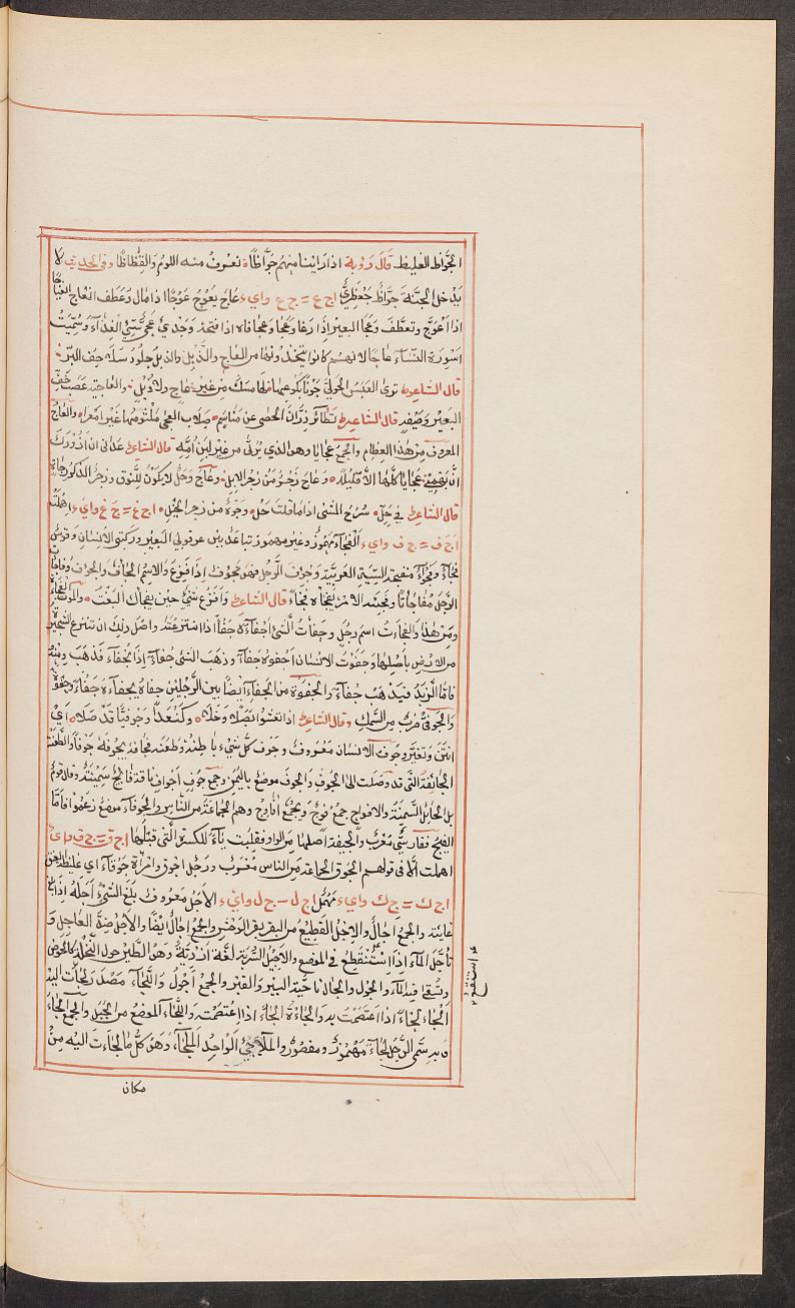 الجوّاظ الغليظ قال رؤبة اذا رأينا منهم جوّاظا نعرف منه اللوم والفظاظا وفي الحديث لا
يدخل الجنة جوّاظ جعظري اج ع = ج ع واي عاج يعوج عوجا اذا مال وعطف انعاج انعياجا
اذا اعوج وتعطف وعجا البعير اذا رغا وعجا وعجا فاه اذا فتحه وجدي عجي سيّئ الغذاء وسميت
النساء عاجا لانهم كانوا يتخذونها من العاج والذبل والذبل جلود سلحفاة البر
قال الشاعر ترى العبس الحولي جونا بكوعها لها مسك من غير عاج ولا ذبل والعجاية عصب خف
البعير وصفيه قال الشاعر تطاير ظران الحصى عن مناسم صلاب العجى ملثومها غير امعرا والعاج
المعروف من هذا العظام والجمع عجايا وهو الذي يربى من غير لبن امه قال الشاعر عداني ان ازورك
ان بهمي عجايا كلها الا قليلا وعاج زجر من زجر الابل وعاج وحل لا يكون للنوق وزجر الذكور جاه
قال الشاعر في حل سريع المشي اذا ما قلت حل وجوه من زجر الخيل اج غ = ج غ واي اهملت
اج ف = ج ف واي الفجاء مهموز وغير مهموز تباعد بين عرقوبي البعير وركبتي الانسان وقوس
فجاء وفجواء منفجة السية العربية وجوف الرجل فهو مجوف اذا فزع والاسم الجاف والجواف وفاجات
الرجل مفاجأة وفجئه الامر يفجاه فجاءة قال الشاعر وافزع شيء حين يفجاك البغت والموت الفجاءة
ومن هذا والفجاءة اسم رجل وجفات الشيء اجفاءة جفا اذا انتزعته واصل ذلك ان تنتزع الشجرة
من الارض باصلها وجفوت الانسان اجفوه جفاء وذهب الشيء جفاء اذا انجفا فذهب ومنه
فاما الزبد فيذهب جفاء والجفوة من الجفاء ايضا بين الرجلين جفاه يجفاه جفاء وجفوة
والجوفي ضرب من السمك وقال الشاعر اذا تعشوا بصلا وخلا وكنعدا وجوفيا قد صلا اي
انتن وتغير وجوف الانسان معروف وجوف كل شيء باطنه وطعنه فجافه يجوفه جوفا والطعنة
الجائفة التي قد وصلت الى الجوف والجوف موضع باليمن وجمع جوف اجواف ناقة فائج سمينة وقال قوم
بل الحائل السمينة والافواج جمع فوج ويجمع افاوج وهم الجماعة من الناس والجوفاء موضع زعموا فاما
الفيج ففارسي معرب والجيفة اصلها من الواو فقلبت ياء للكسرة التي قبلها اج ق = ج ق واي
اهملت الا في قولهم الجوق الجماعة من الناس معرب ورجل اجوق وامراة جوقاء اي غليظة العنق
اج ك = ج ك واي مهمل اج ل - ج ل واي الاجل معروف بلغ الشيء اجله اذا بلغ
غايته والجمع آجال والاجل القطيع من البقر بقر الوحش والجمع اجال ايضا والآجل ضد العاجل و
تأجل الماء اذا استنقع في الموضع والاجيل الشربة لغة ازدية وهو الطين حول النخلة كالحوض
وتسقى فيه الماء والجول والجال ناحية البئر والقبر والجمع اجوال واللجاء مصدر لجأت اليه
الجاء لجاء اذا اعتصمت به والجاءة الجاء اذا اعتصمت واللجاء الموضع من الجبل والجمع الجاء
وبه سمي الرجل لجاء مهموز ومقصور والملاجئ الواحد الملجاء وهو كل ما لجأت اليه من
مكان
استنقع